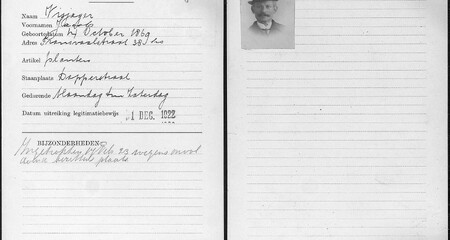 Naam Vrijager
Voornamen
Geboortedatum 24 October 1869
Adres 38 hs
Artikel planten
Staanplaats Dapperstraat
Gedurende Maandag t/m Zaterdag
Datum uitreiking legitimatiebewijs 1 DEC. 1922
BIJZONDERHEDEN:
Ingetrokken 17 Feb. 23 wegens onvol
plaats